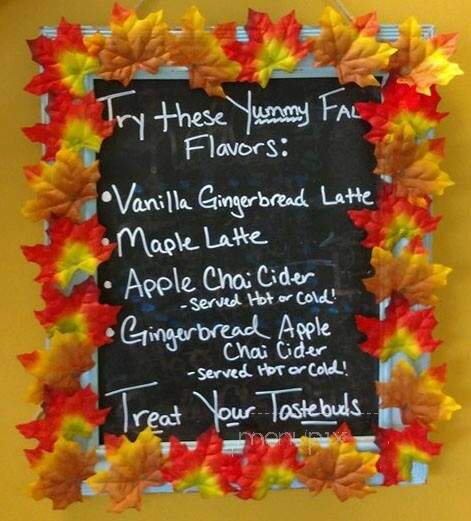 Try these Yummy Fall
Flavors:
• Vanilla Gingerbread Latte
• Maple Latte
• Apple Chai Cider
- Served Hot or Cold!
• Gingerbread Apple
Chai Cider
- Served Hot or Cold!
Treat Your Tastebuds
menupix